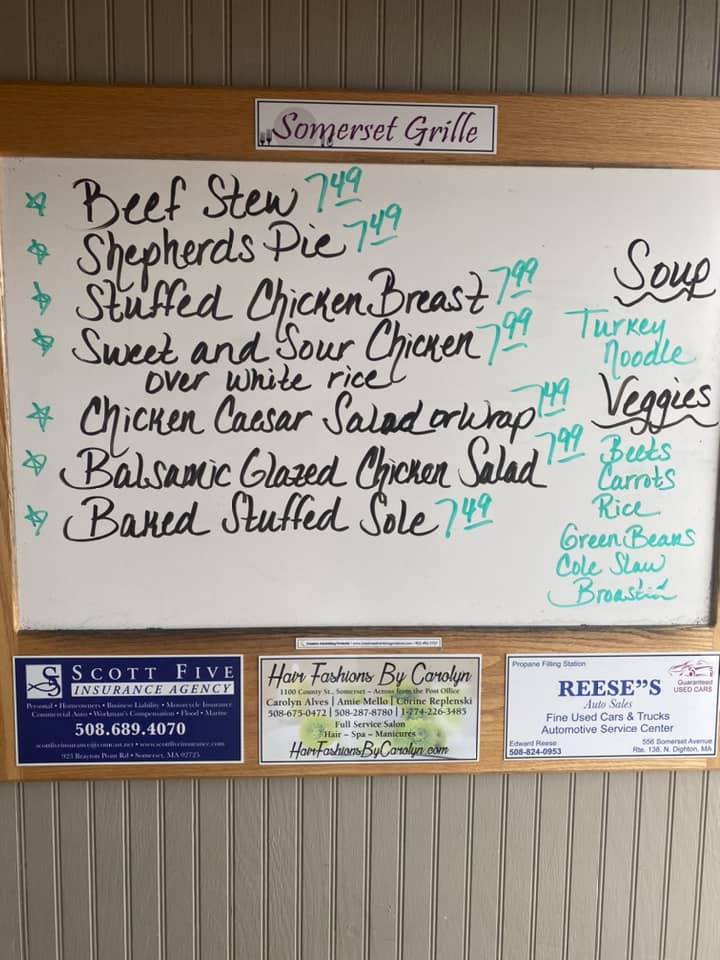 Somerset Grille
Beef Stew 7.49
Shepherds Pie 7.49
Stuffed Chicken Breast 7.99
Sweet and Sour Chicken 7.99
over white rice
Chicken Caesar Salad or Wrap 7.49
Balsamic Glazed Chicken Salad 7.99
Baked Stuffed Sole 7.49
Soup
Turkey
Noodle
Veggies
Beets
Carrots
Rice
Green Beans
Cole Slaw
SCOTT FIVE
INSURANCE AGENCY
Personal • Homeowners • Business Liability • Motorcycle Insurance
Commercial Auto • Workman's Compensation • Flood • Marine
508.689.4070
scottfiveinsurance@comcast.net • www.scottfiveinsurance.com
923 Brayton Point Rd • Somerset, MA 02725
Hair Fashions By Carolyn
1100 County St., Somerset ~ Across from the Post Office
Carolyn Alves | Amie Mello | Corine Replenski
508-675-0472 | 508-287-8780 | 1-774-226-3485
Full Service Salon
Hair ~ Spa ~ Manicures
HairFashionsByCarolyn.com
Propane Filling Station
Guaranteed
USED CARS
REESE"S
Auto Sales
Fine Used Cars & Trucks
Automotive Service Center
Edward Reese
508-824-0953
556 Somerset Avenue
Rte. 138, N. Dighton, MA